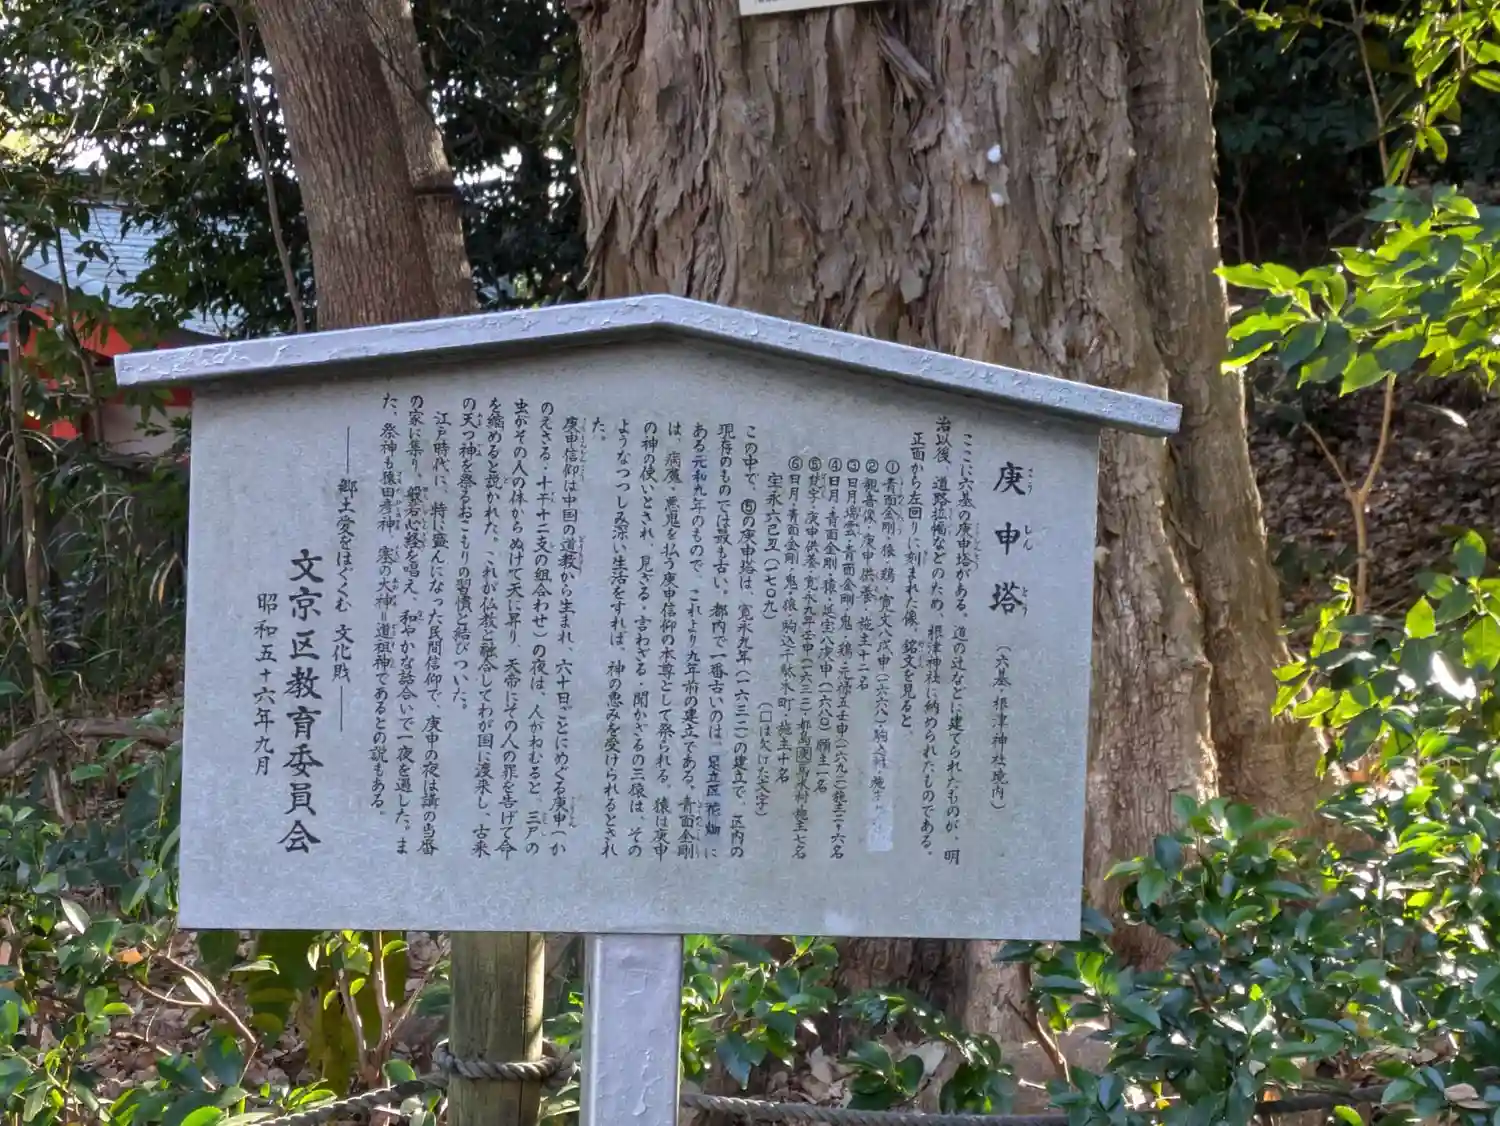 庚申塔 (六基・根津神社境内)
ここに六基の庚申塔がある。道の辻などに建てられたものが、明
治以後、道路拡幅などのため、根津神社に納められたものである。
正面から左回りに刻まれた像、銘文を見ると、
①青面金剛・猿・鶏・寛文八戊申(一六六八)駒込村・施主
②観音像・庚申供養・施主十二名
③日月瑞雲・青面金剛・鬼・鶏・元禄五壬申(一六九二)施主二十六名
④日月・青面金剛・猿・延宝八庚申(一六八〇)願主一名
⑤梵字・庚申供養・寛永九年壬申(一六三二)都島 馬米村・施主七名
⑥日月・青面金剛・鬼・猿・駒込千駄木町・施主十名
宝永六己丑(一七〇九)
(□は欠けた文字)
この中で、⑤の庚申塔は、寛永九年(一六三二)の建立で、区内の
現存のものでは最も古い。都内で一番古いのは、足立区花畑に
ある元和九年のもので、これより九年前の建立である。青面金剛
は、病魔、悪鬼を払う庚申信仰の本尊として祭られる。猿は庚申
の神の使いとされ、見ざる・言わざる・聞かざるの三猿は、その
ようなつつしみ深い生活をすれば、神の恵みを受けられるとされ
た。
庚申信仰は中国の道教から生まれ、六十日ごとにめぐる庚申(か
のえさる・十干十二支の組合わせ)の夜は、人がねむると、三尸の
虫がその人の体からぬけて天に昇り、天帝にその人の罪を告げて命
を縮めると説かれた。これが仏教と融合してわが国に渡来し、古来
の天つ神を祭るおこもりの習慣と結びついた。
江戸時代に、特に盛んになった民間信仰で、庚申の夜は講の当番
の家に集り、般若心経を唱え、和やかな話合いで一夜を過した。ま
た、祭神も猿田彦神、塞の大神=道祖神であるとの説もある。
――郷土愛をはぐくむ 文化財――
文京区教育委員会
昭和五十六年九月